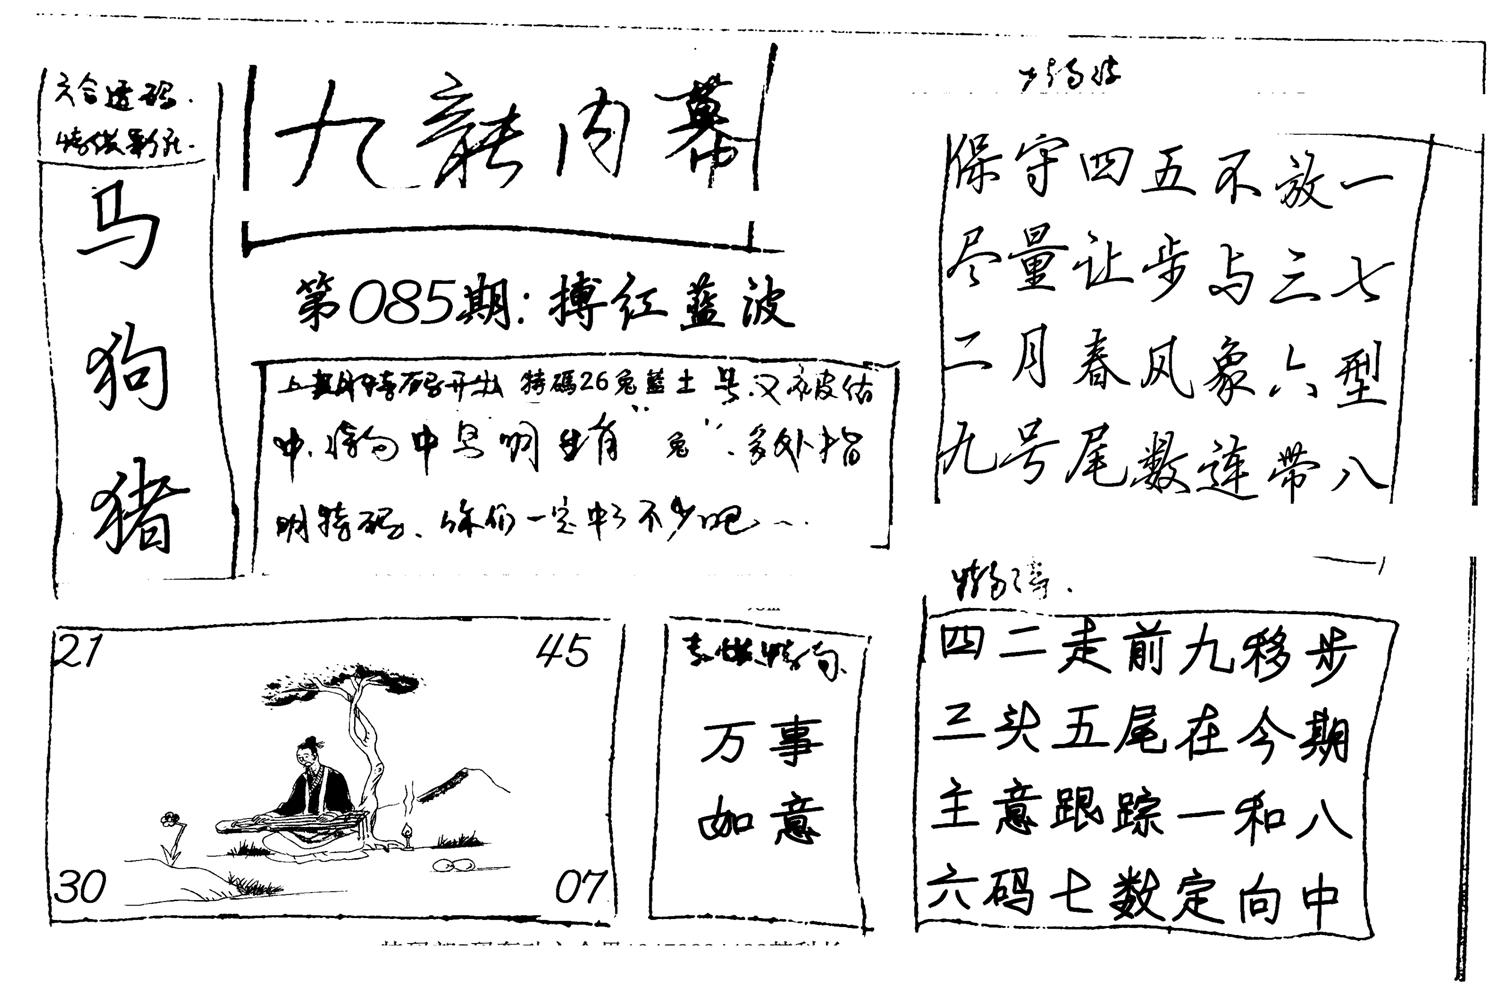 六合透码.
九龙内幕
马
狗
猪
第085期:搏红蓝波
上期特码开出 特碼26兔蓝土号.又被估
中.特句中已明生肖“兔”.多处指
明特码、你们一定中了不少吧
21 45
30 07
特句
万事
如意
保守四五不放一
尽量让步与三七
二月春风象六型
九号尾数连带八
四二走前九移步
三头五尾在今期
主意跟踪一和八
六码七数定向中